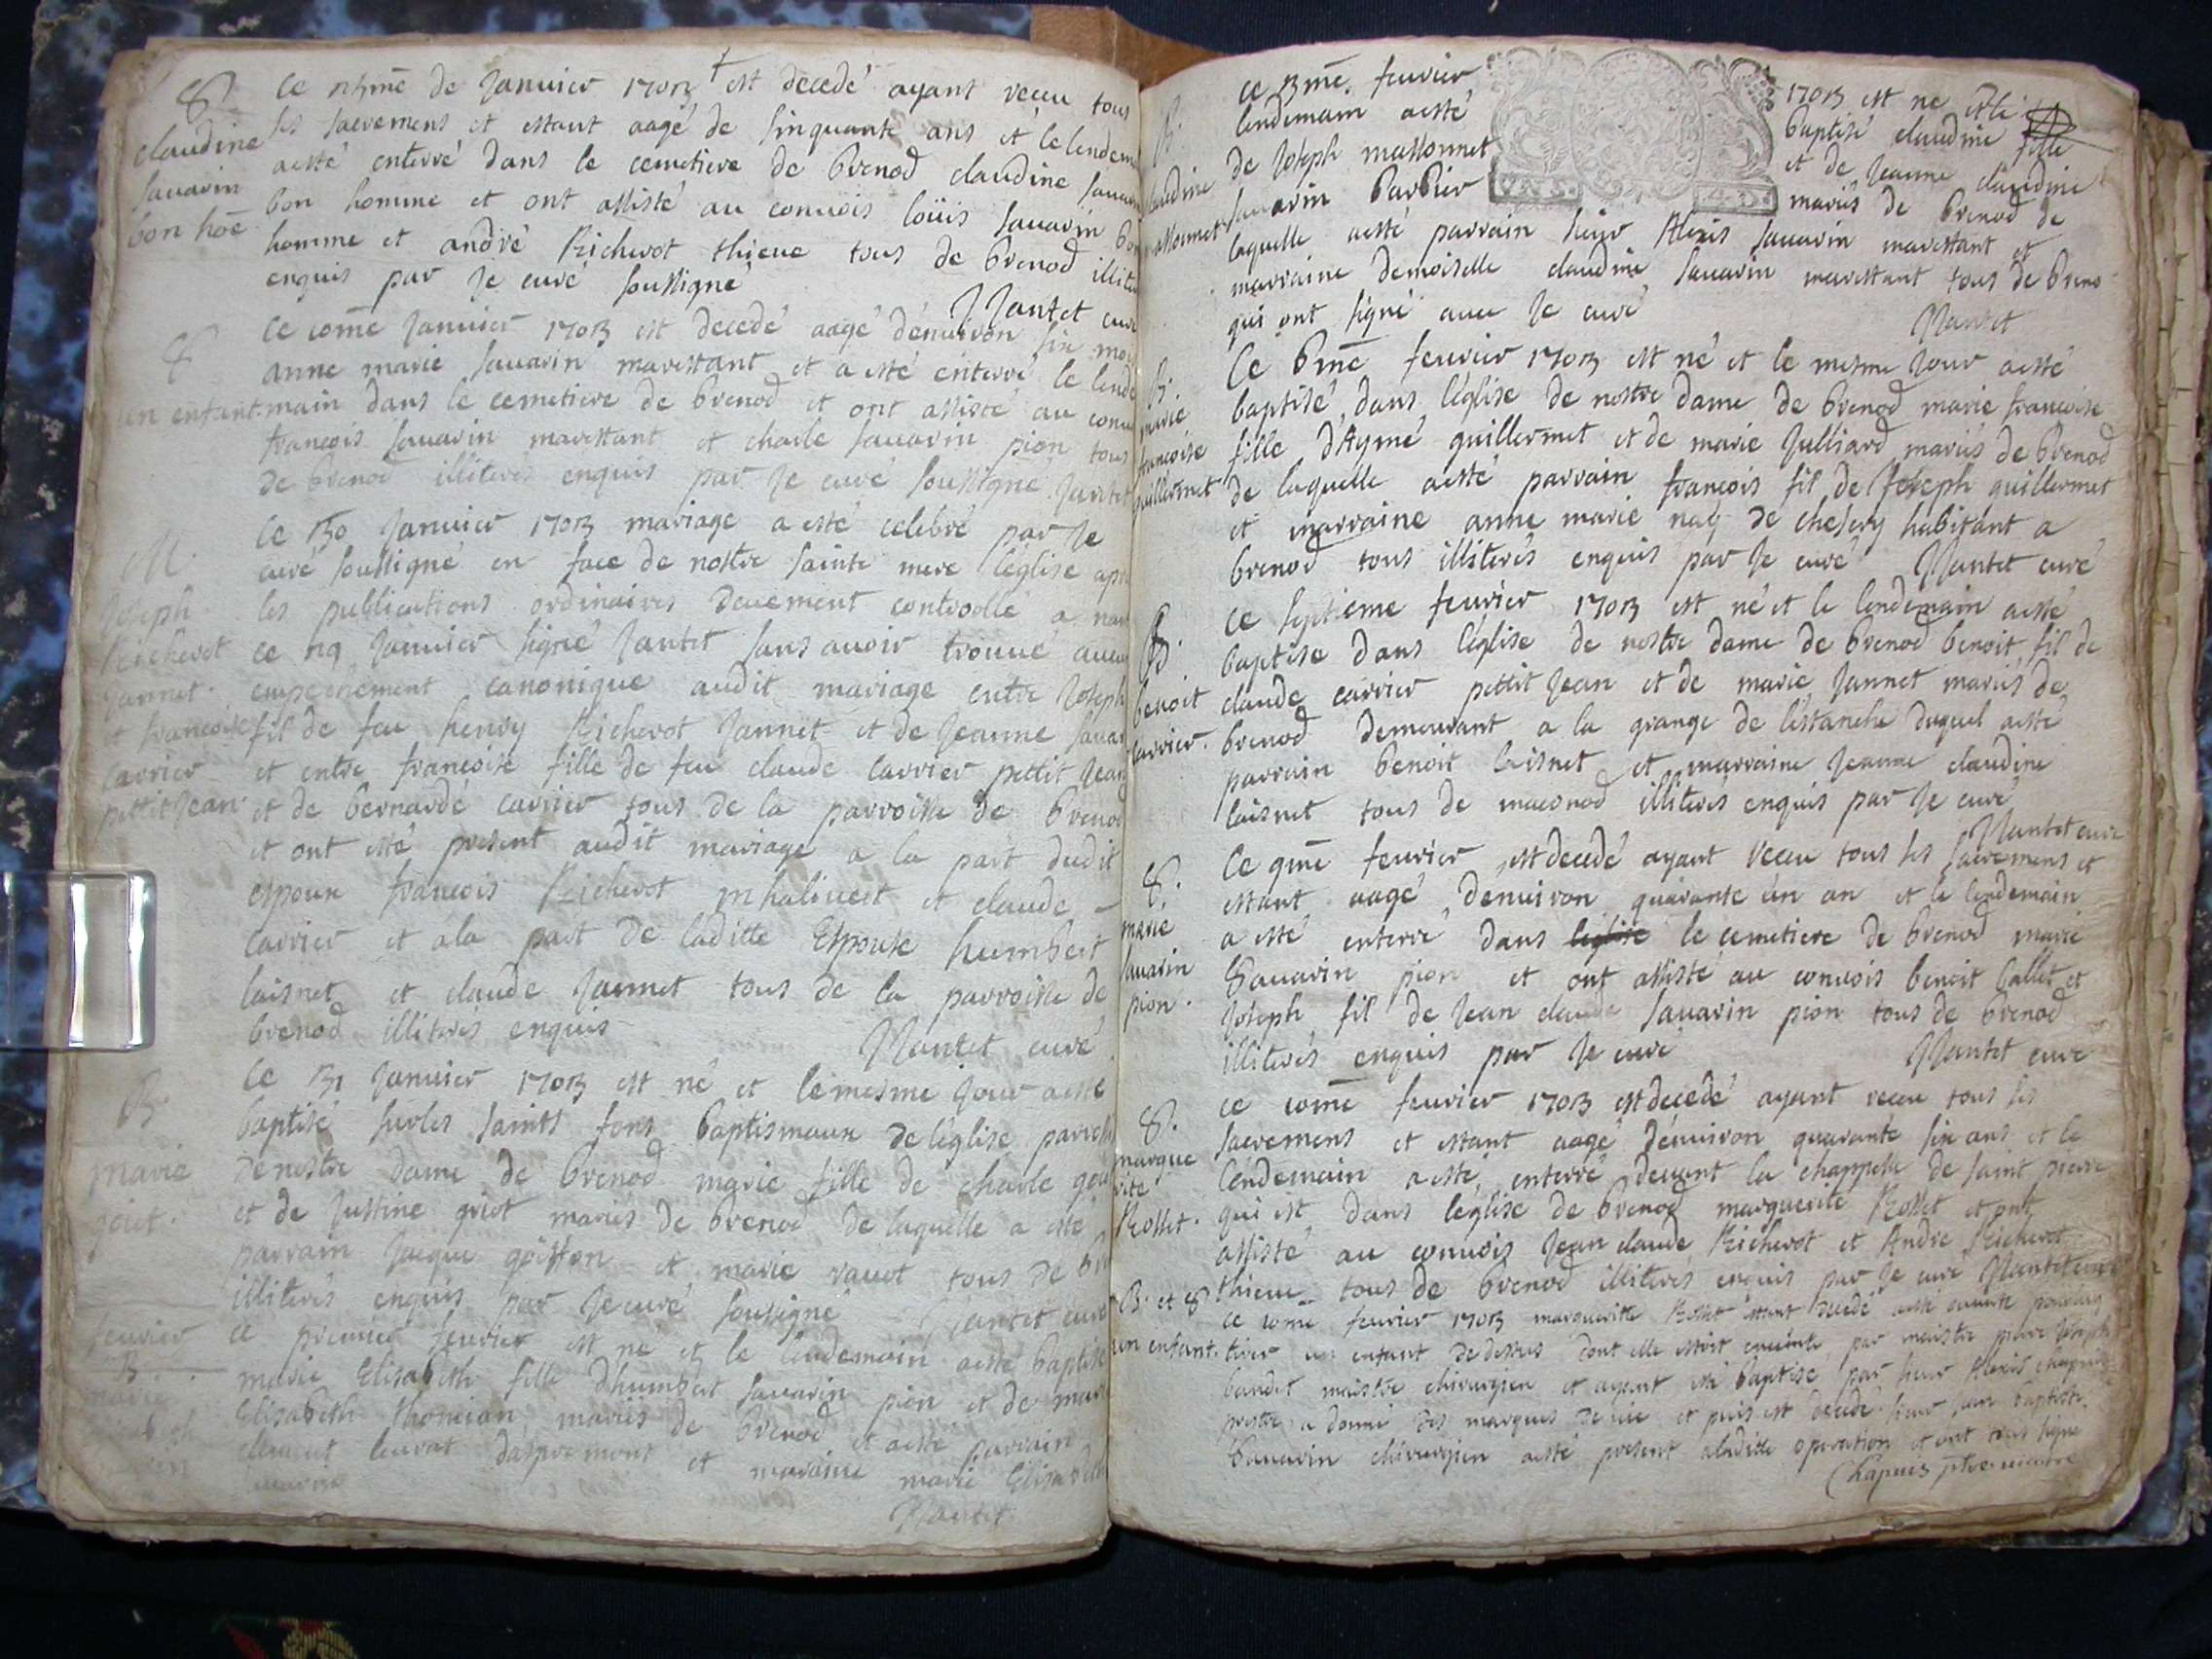 ce me de Janvier 1703 est decedé ayant receu tous
claudine ses sacremens et estant aagé de sinquante ans et le lendem
savarin aesté enterré dans le cemetiere de brenod claudine savarin
bon hoe bon homme et ont assisté au convois loüis savarin bon
homme et andré Richerot thieue tous de brenod illiter
enquis par Je curé soussigné
Jantet curé
ce 20me Janvier 1703 est decedé aagé d'environ six mois
anne marie savarin marestant et a esté enterré le lende
un enfant main dans le cemetiere de brenod et ont assisté au convoi
francois savarin marestant et charle savarin pion tous
de brenod illiterés enquis par Je curé soussigné Jantet
M. ce 30 Janvier 1703 mariage a esté celebré par Je
curé soussigné en face de nostre sainte mere l'église apres
Joseph les publications ordinaires deuement controollé a nan
Richerot ce 29 Janvier signé Jantet sans avoir trouué aucun
Jannet empechement canonique audit mariage entre Joseph
et francoise fil de feu henry Richerot Jannet et de Jeanne savar
carrier et entre francoise fille de feu claude carrier pettit Jean
pettit Jean et de bernarde carrier tous de la parroisse de brenod
et ont esté present audit mariage a la part dudit
espoux francois Richerot et claude
carrier et a la part de laditte Espouse humbert
laisnet et claude Jannet tous de la parroisse de
brenod illiterés enquis
Jantet curé
B. ce 31 Janvier 1703 est né et le mesme Jour aesté
baptisé sur les saints fons baptismaux de l'église parroch
marie de nostre dame de brenod marie fille de charle
goiet. et de Justine griot mariés de brenod de laquelle a esté
parrain Jaque goiffon et marie ravet tous de bre
illiterés enquis par Je curé sousigné Jantet curé
feurier ce premier feurier est né et le lendemain aesté baptisé
B. marie Elisabeth fille d'humbert savarin pion et de marie
Elisabeth thomian mariés de brenod et aesté parrain
clement leurat d'aspremont et maraine marie Elisabeth
Jantet
B. ce 3me feurier 1703 est ne et le
lendemain aesté baptisé claudine fille
claudine de Joseph massonnet et de Jeanne claudine
massonnet savarin barbier mariés de brenod de
laquelle aesté parrain sieur Alexis savarin marestant et
marraine demoiselle claudine savarin marestant tous de breno
qui ont signé avec Je curé
Jantet
B. Ce 6me feurier 1703 est né et le mesme Jour aesté
marie baptisé dans l'église de nostre dame de brenod marie francoise
francoise fille d'Aymé guillermet et de marie Julliard mariés de brenod
guillermet de laquelle aesté parrain francois fil de Joseph guillermet
et marraine anne marie de chesery habitant a
brenod tous illiterés enquis par Je curé Jantet curé
B. ce septieme feurier 1703 est né et le lendemain aesté
baptisé dans l'église de nostre dame de brenod benoit fil de
benoit claude carrier pettit Jean et de marie Jannet mariés de
carrier. brenod demeurant a la grange de l'estanche duquel aesté
parrain benoit laisnet et marraine Jeanne claudine
laisnet tous de maconod illiterés enquis par Je curé
Jantet curé
Ce 9me feurier est decedé ayant receu tous ses sacremens et
estant aagé d'environ quarante un an et le lendemain
marie a esté enterré dans l'église le cemetiere de brenod marie
savarin Savarin pion et ont assisté au convois benoit ballet et
pion. Joseph fil de Jean claude savarin pion tous de brenod
illiterés enquis par Je curé Jantet curé
ce 10me feurier 1703 est decedé ayant receu tous ses
sacremens et estant aagé d'environ quarante six ans et le
margue lendemain aesté enterré devant la chappelle de saint pierre
rite qui est dans l'église de brenod marguerite Rosset et ont
Rosset. assisté au convois Jean claude Richerot et André Richerot
thieue tous de brenod illiterés enquis par Je curé Jantet curé
B. et ce 10me feurier 1703 margueritte Rosset estant decedé aesté ouverte pour en
un enfant. tirer un enfant de dessus dont elle estoit enceinte, par maistre pierre Joseph
baudet maistre chirurgien et ayant esté baptisé par sieur Alexis chapuis
prestre a donné des marques de vie et puis est decedé sieur Jean baptiste
Savarin chirurgien aesté present a laditte operation et ont tous signe
Chapuis ptre vicaire